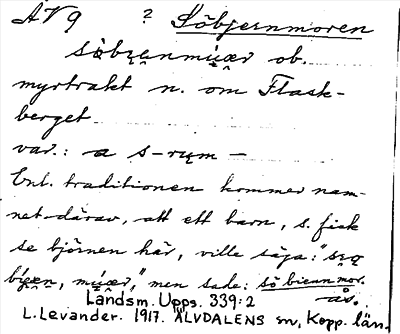 ÄV 9 ? Söbjernmoren
ob.
myrtrakt n. om Flask-
berget
var.: a s-rum –
Enl. traditionen kommer nam-
net därav, att ett barn, s. fick
se björnen här, ville säga: "
men sade:
Landsm. Upps. 339:2
L. Levander. 1917. ÄLVDALENS sn, Kopp. län.